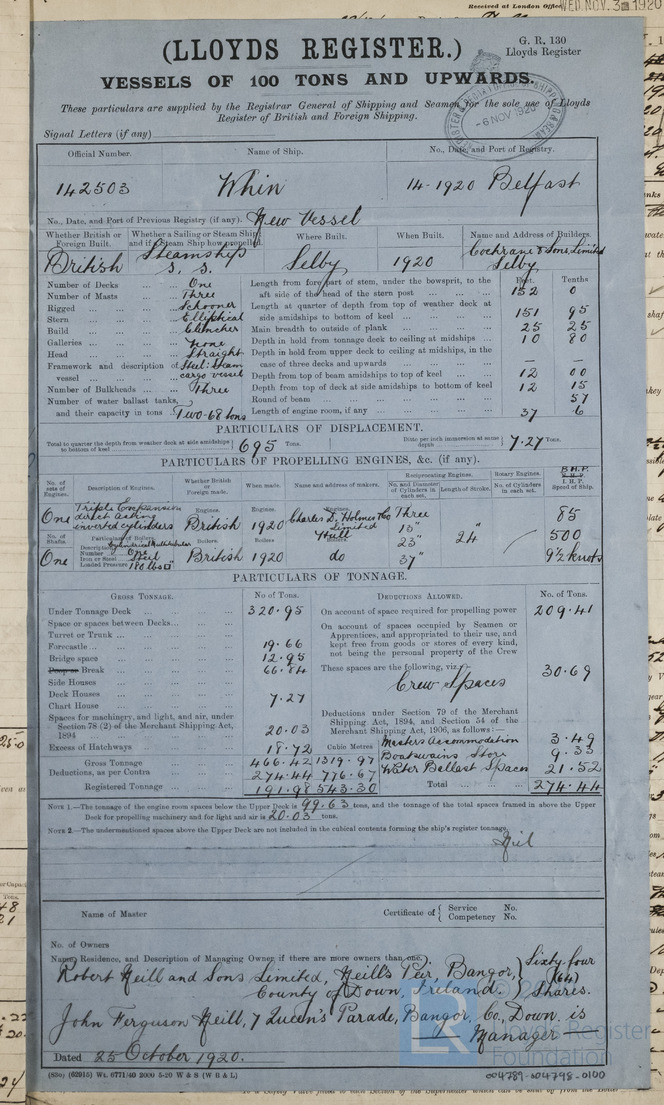 Received at London Office WED. NOV. 3 1920
(LLOYDS REGISTER.)
G. R. 130
Lloyds Register
VESSELS OF 100 TONS AND UPWARDS.
These particulars are supplied by the Registrar General of Shipping and Seamen for the sole use of Lloyds
Register of British and Foreign Shipping.
-6 NOV 1920
Signal Letters (if any)
Official Number. Name of Ship. No., Date, and Port of Registry.
142503 Whin 14-1920 Belfast
No., Date, and Port of Previous Registry (if any). New Vessel
Whether British or Foreign Built. Whether a Sailing or Steam Ship and if a Steam Ship how propelled. Where Built. When Built. Name and Address of Builders.
British Steamship S. S. Selby 1920 Cochrane & Sons Limited Selby
Number of Decks ... One
Number of Masts ... Three
Rigged ... Schooner
Stern ... Elliptical
Build ... Clencher
Galleries ... None
Head ... Straight
Framework and description of vessel ... Steel: Steam cargo vessel
Number of Bulkheads ... Three
Number of water ballast tanks, and their capacity in tons ... Two-68 tons
Feet. Tenths
Length from fore part of stem, under the bowsprit, to the aft side of the head of the stern post ... 152 0
Length at quarter of depth from top of weather deck at side amidships to bottom of keel ... 151 95
Main breadth to outside of plank ... 25 25
Depth in hold from tonnage deck to ceiling at midships ... 10 80
Depth in hold from upper deck to ceiling at midships, in the case of three decks and upwards ... — —
Depth from top of beam amidships to top of keel ... 12 00
Depth from top of deck at side amidships to bottom of keel 12 15
Round of beam ... 57
Length of engine room, if any ... 37 6
PARTICULARS OF DISPLACEMENT.
Total to quarter the depth from weather deck at side amidships to bottom of keel } 695 Tons. Ditto per inch immersion at same depth } 7.27 Tons.
PARTICULARS OF PROPELLING ENGINES, &c. (if any).
No. of sets of Engines. Description of Engines. Whether British or Foreign made. When made. Name and address of makers. Reciprocating Engines. No. and Diameter of Cylinders in each set. Length of Stroke. Rotary Engines. No. of Cylinders in each set. N.H.P. I.H.P. Speed of Ship.
One Triple Expansion direct acting inverted cylinders Engines. British Engines. 1920 Engines. Charles D. Holmes & Co Limited Hull Three 15" 23" 37" 24" 85 500 9½ knots
No. of Shafts. Particulars of Boilers. Description Cylindrical Multitubular Boilers. Boilers. Boilers.
One Number One Iron or Steel Steel Loaded Pressure 180 lbs □" British 1920 do
PARTICULARS OF TONNAGE.
GROSS TONNAGE. No of Tons. DEDUCTIONS ALLOWED. No. of Tons.
Under Tonnage Deck ... 320.95
Space or spaces between Decks ...
Turret or Trunk ...
Forecastle ... 19.66
Bridge space ... 12.95
Poop or Break ... 66.84
Side Houses ...
Deck Houses ... 7.27
Chart House ...
Spaces for machinery, and light, and air, under Section 78 (2) of the Merchant Shipping Act, 1894 ... 20.03
Excess of Hatchways ... 18.72 Cubic Metres
Gross Tonnage ... 466.42 1319.97
Deductions, as per Contra ... 274.44 776.67
Registered Tonnage ... 191.98 543.30
On account of space required for propelling power 209.41
On account of spaces occupied by Seamen or Apprentices, and appropriated to their use, and kept free from goods or stores of every kind, not being the personal property of the Crew
These spaces are the following, viz.: 30.69
Crew Spaces
Deductions under Section 79 of the Merchant Shipping Act, 1894, and Section 54 of the Merchant Shipping Act, 1906, as follows:—
Masters Accommodation 3.49
Boatswains Store 9.33
Water Ballast Spaces 21.52
Total ... 274.44
NOTE 1.—The tonnage of the engine room spaces below the Upper Deck is 99.63 tons, and the tonnage of the total spaces framed in above the Upper
Deck for propelling machinery and for light and air is 20.03 tons.
NOTE 2.—The undermentioned spaces above the Upper Deck are not included in the cubical contents forming the ship's register tonnage.
Nil
Name of Master Certificate of { Service No. Competency No.
No. of Owners
Name, Residence, and Description of Managing Owner if there are more owners than one.
Robert Neill and Sons Limited, Neill's Pier, Bangor, County of Down, Ireland. } Sixty four (64) Shares.
John Ferguson Neill, 7 Queen's Parade, Bangor, Co. Down. is
Manager
Dated 25 October 1920.
(830) (62915) Wt. 6771/40 2000 5-20 W & S (W B & L)
LR
Lloyds Register
Foundation
004789-004798-0100